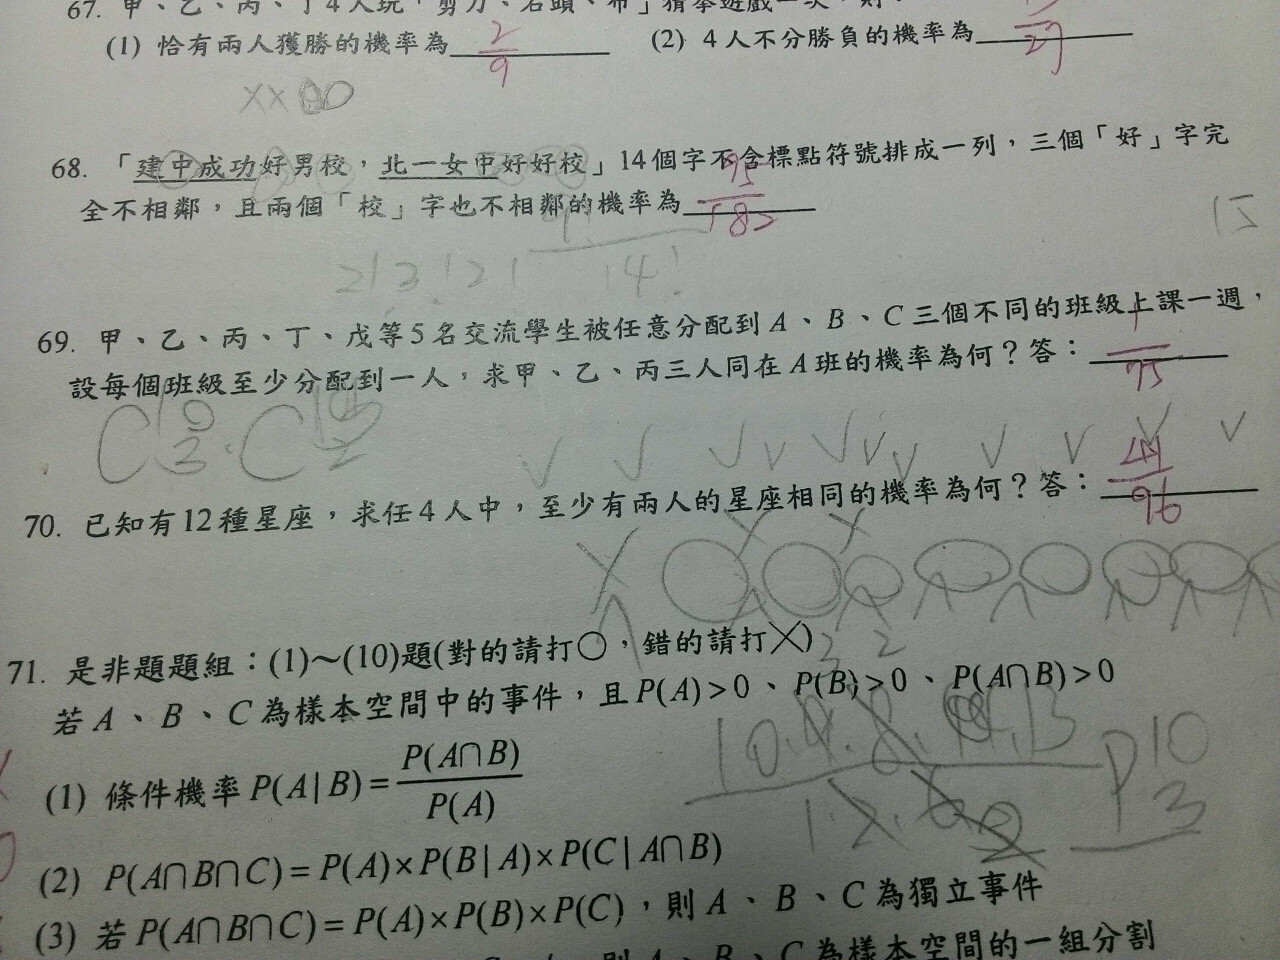 67. 甲、乙、丙、丁4人玩「剪刀、石頭、布」猜拳遊戲一次,則:
(1) 恰有兩人獲勝的機率為 2/9 (2) 4人不分勝負的機率為 /27
XX
68. 「建中成功好男校,北一女中好好校」14個字不含標點符號排成一列,三個「好」字完
全不相鄰,且兩個「校」字也不相鄰的機率為 95/182
15
2!3!2! 14!
69. 甲、乙、丙、丁、戊等5名交流學生被任意分配到A、B、C三個不同的班級上課一週,
設每個班級至少分配到一人,求甲、乙、丙三人同在A班的機率為何?答: 1/75
70. 已知有12種星座,求任4人中,至少有兩人的星座相同的機率為何?答: 41/96
71. 是非題題組:(1)~(10)題(對的請打○,錯的請打╳)
若A、B、C為樣本空間中的事件,且P(A)>0、P(B)>0、P(A∩B)>0
P 10 3
(1) 條件機率P(A|B)=P(A∩B)/P(A)
(2) P(A∩B∩C)=P(A)×P(B|A)×P(C|A∩B)
(3) 若P(A∩B∩C)=P(A)×P(B)×P(C),則A、B、C為獨立事件
則A、B、C為樣本空間的一組分割